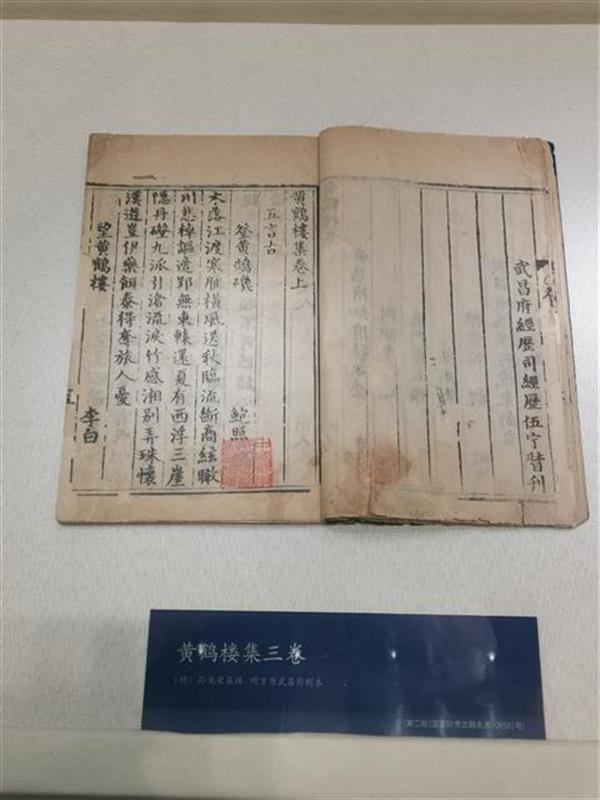 武昌府經歷司經歷伍宁督刊
黃鶴樓集卷上
五言古
登黃鵠磯 鮑照
木落江渡寒雁橫風送秋臨流斷商絃瞰
川悲棹謳適郢無東轅還夏有西浮三崖
隱丹磴九派引滄流淚竹感湘別弄珠懷
漢遊豈伊藥餌泰得奪旅人憂
望黃鶴樓 李白
黄鹤楼集三卷
（明）孙承荣纂辑 明万历武昌府刻本